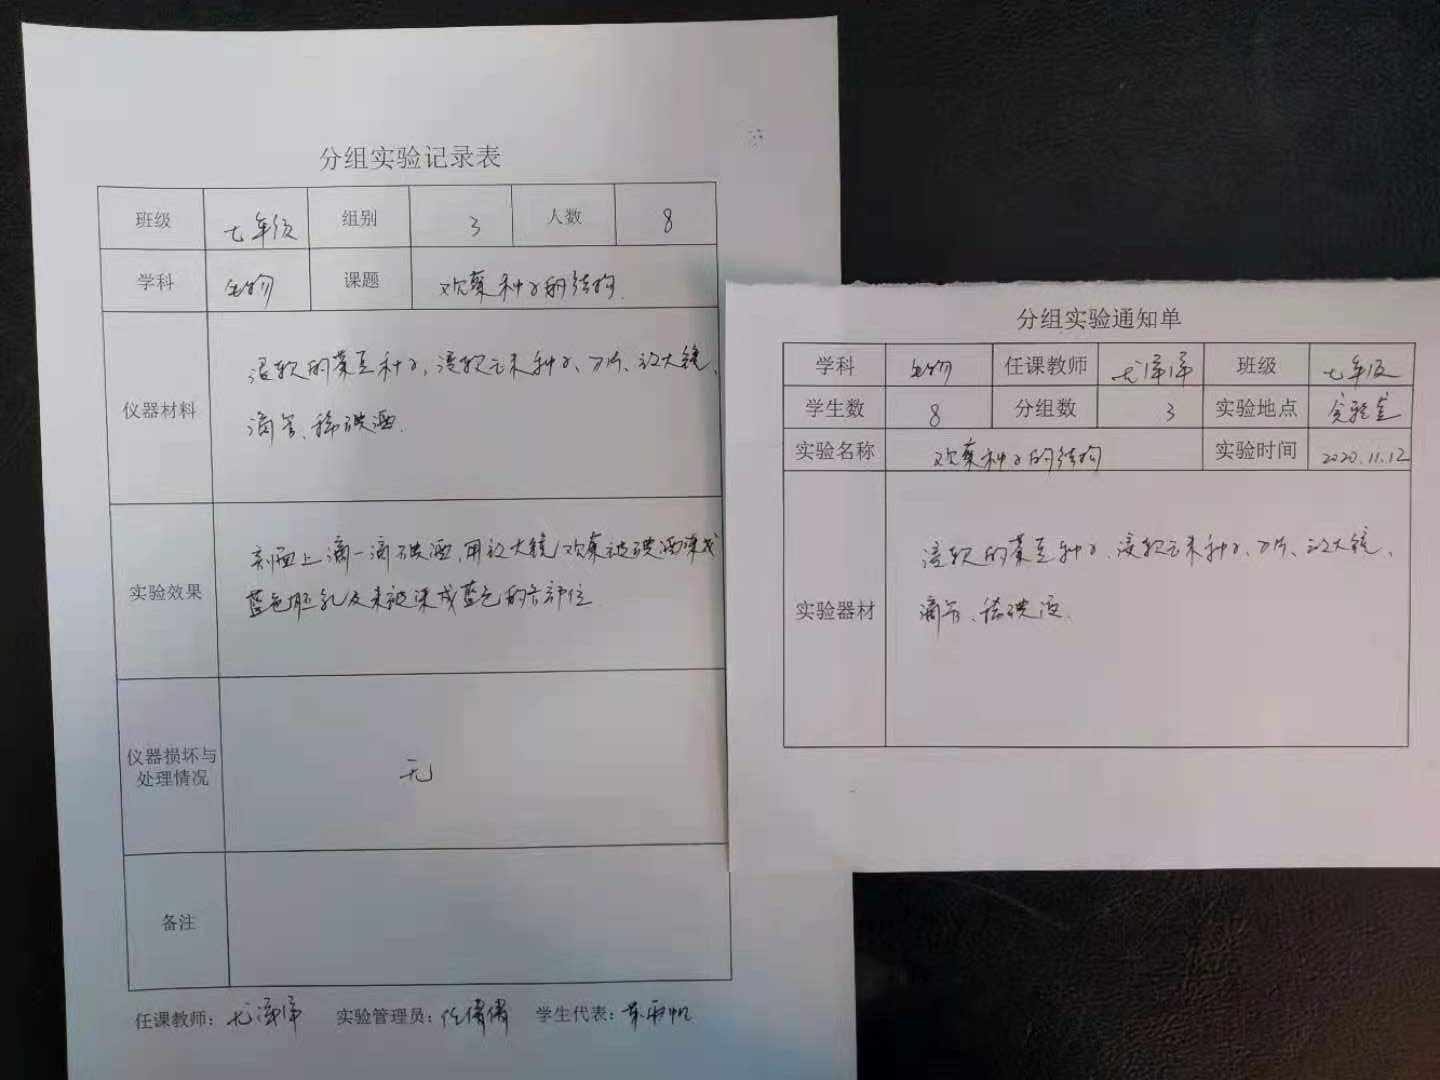 分组实验记录表
班级 七年级 组别 3 人数 8
学科 生物 课题 观察种子的结构
仪器材料
浸软的菜豆种子、浸软玉米种子、刀片、放大镜、
滴管、稀碘酒.
实验效果
剖面上滴一滴碘酒,用放大镜观察被碘酒染成
蓝色胚乳及未被染成蓝色的各部位
仪器损坏与
处理情况
无
备注
任课教师: 尤泽泽 实验管理员: 任倩倩 学生代表:
分组实验通知单
学科 生物 任课教师 尤泽泽 班级 七年级
学生数 8 分组数 3 实验地点 实验室
实验名称 观察种子的结构 实验时间 2020.11.12
实验器材
浸软的菜豆种子、浸软玉米种子、刀片、放大镜、
滴管、稀碘液.